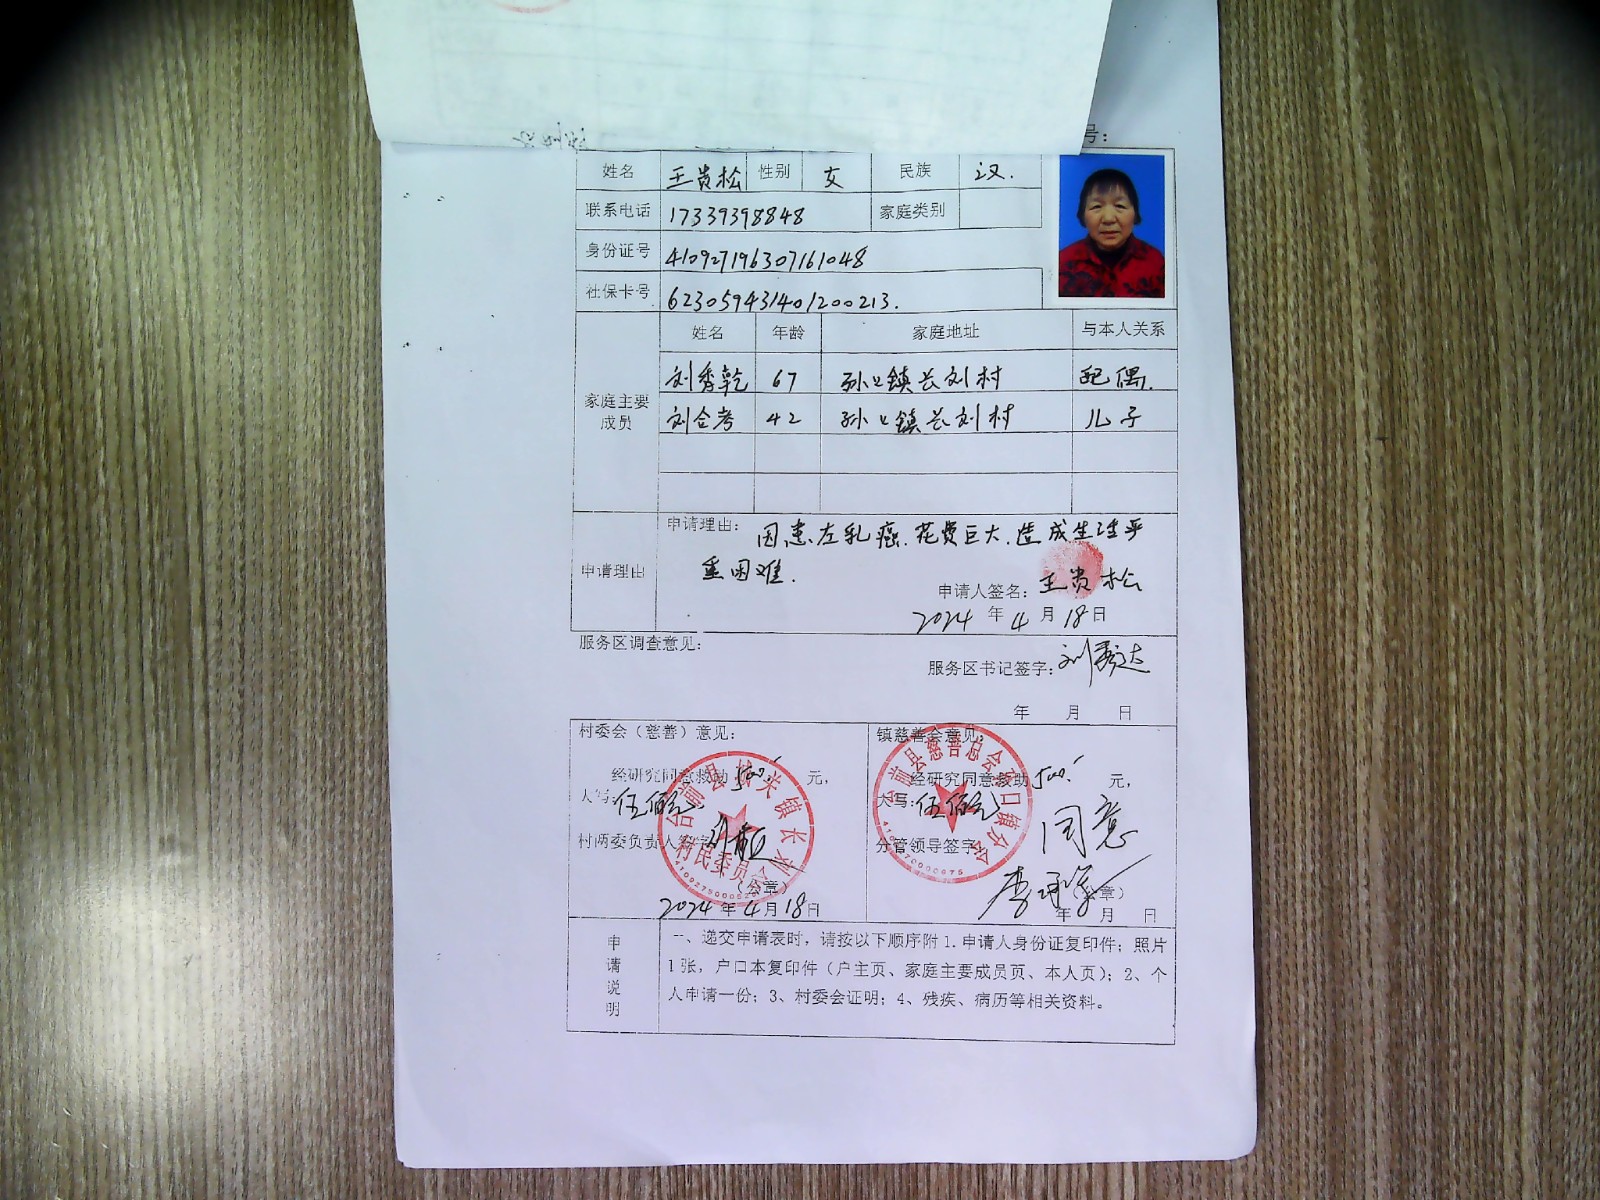 号：
姓名 王贵松 性别 女 民族 汉.
联系电话 17339398848 家庭类别
身份证号 410927196307161048
社保卡号 623059431401200213.
家庭主要成员 姓名 年龄 家庭地址 与本人关系
刘秀乾 67 孙口镇长刘村 配偶.
刘合考 42 孙口镇长刘村 儿子
申请理由 申请理由： 因患左乳癌.花费巨大.造成生活严
重困难.
申请人签名：王贵松
2024 年 4 月 18 日
服务区调查意见：
服务区书记签字：刘秀达
年 月 日
村委会（慈善）意见： 镇慈善会意见：
经研究同意救助 500.- 元， 经研究同意救助 500.- 元，
大写：伍佰元 大写：伍佰元
同意
村两委负责人签字 分管领导签字
（公章） （公章）
2024 年 4 月 18 日 年 月 日
村民委员会
台前县慈善总会孙口镇分会
申请说明 一、递交申请表时，请按以下顺序附 1.申请人身份证复印件；照片
1张，户口本复印件（户主页、家庭主要成员页、本人页）；2、个
人申请一份；3、村委会证明；4、残疾、病历等相关资料。